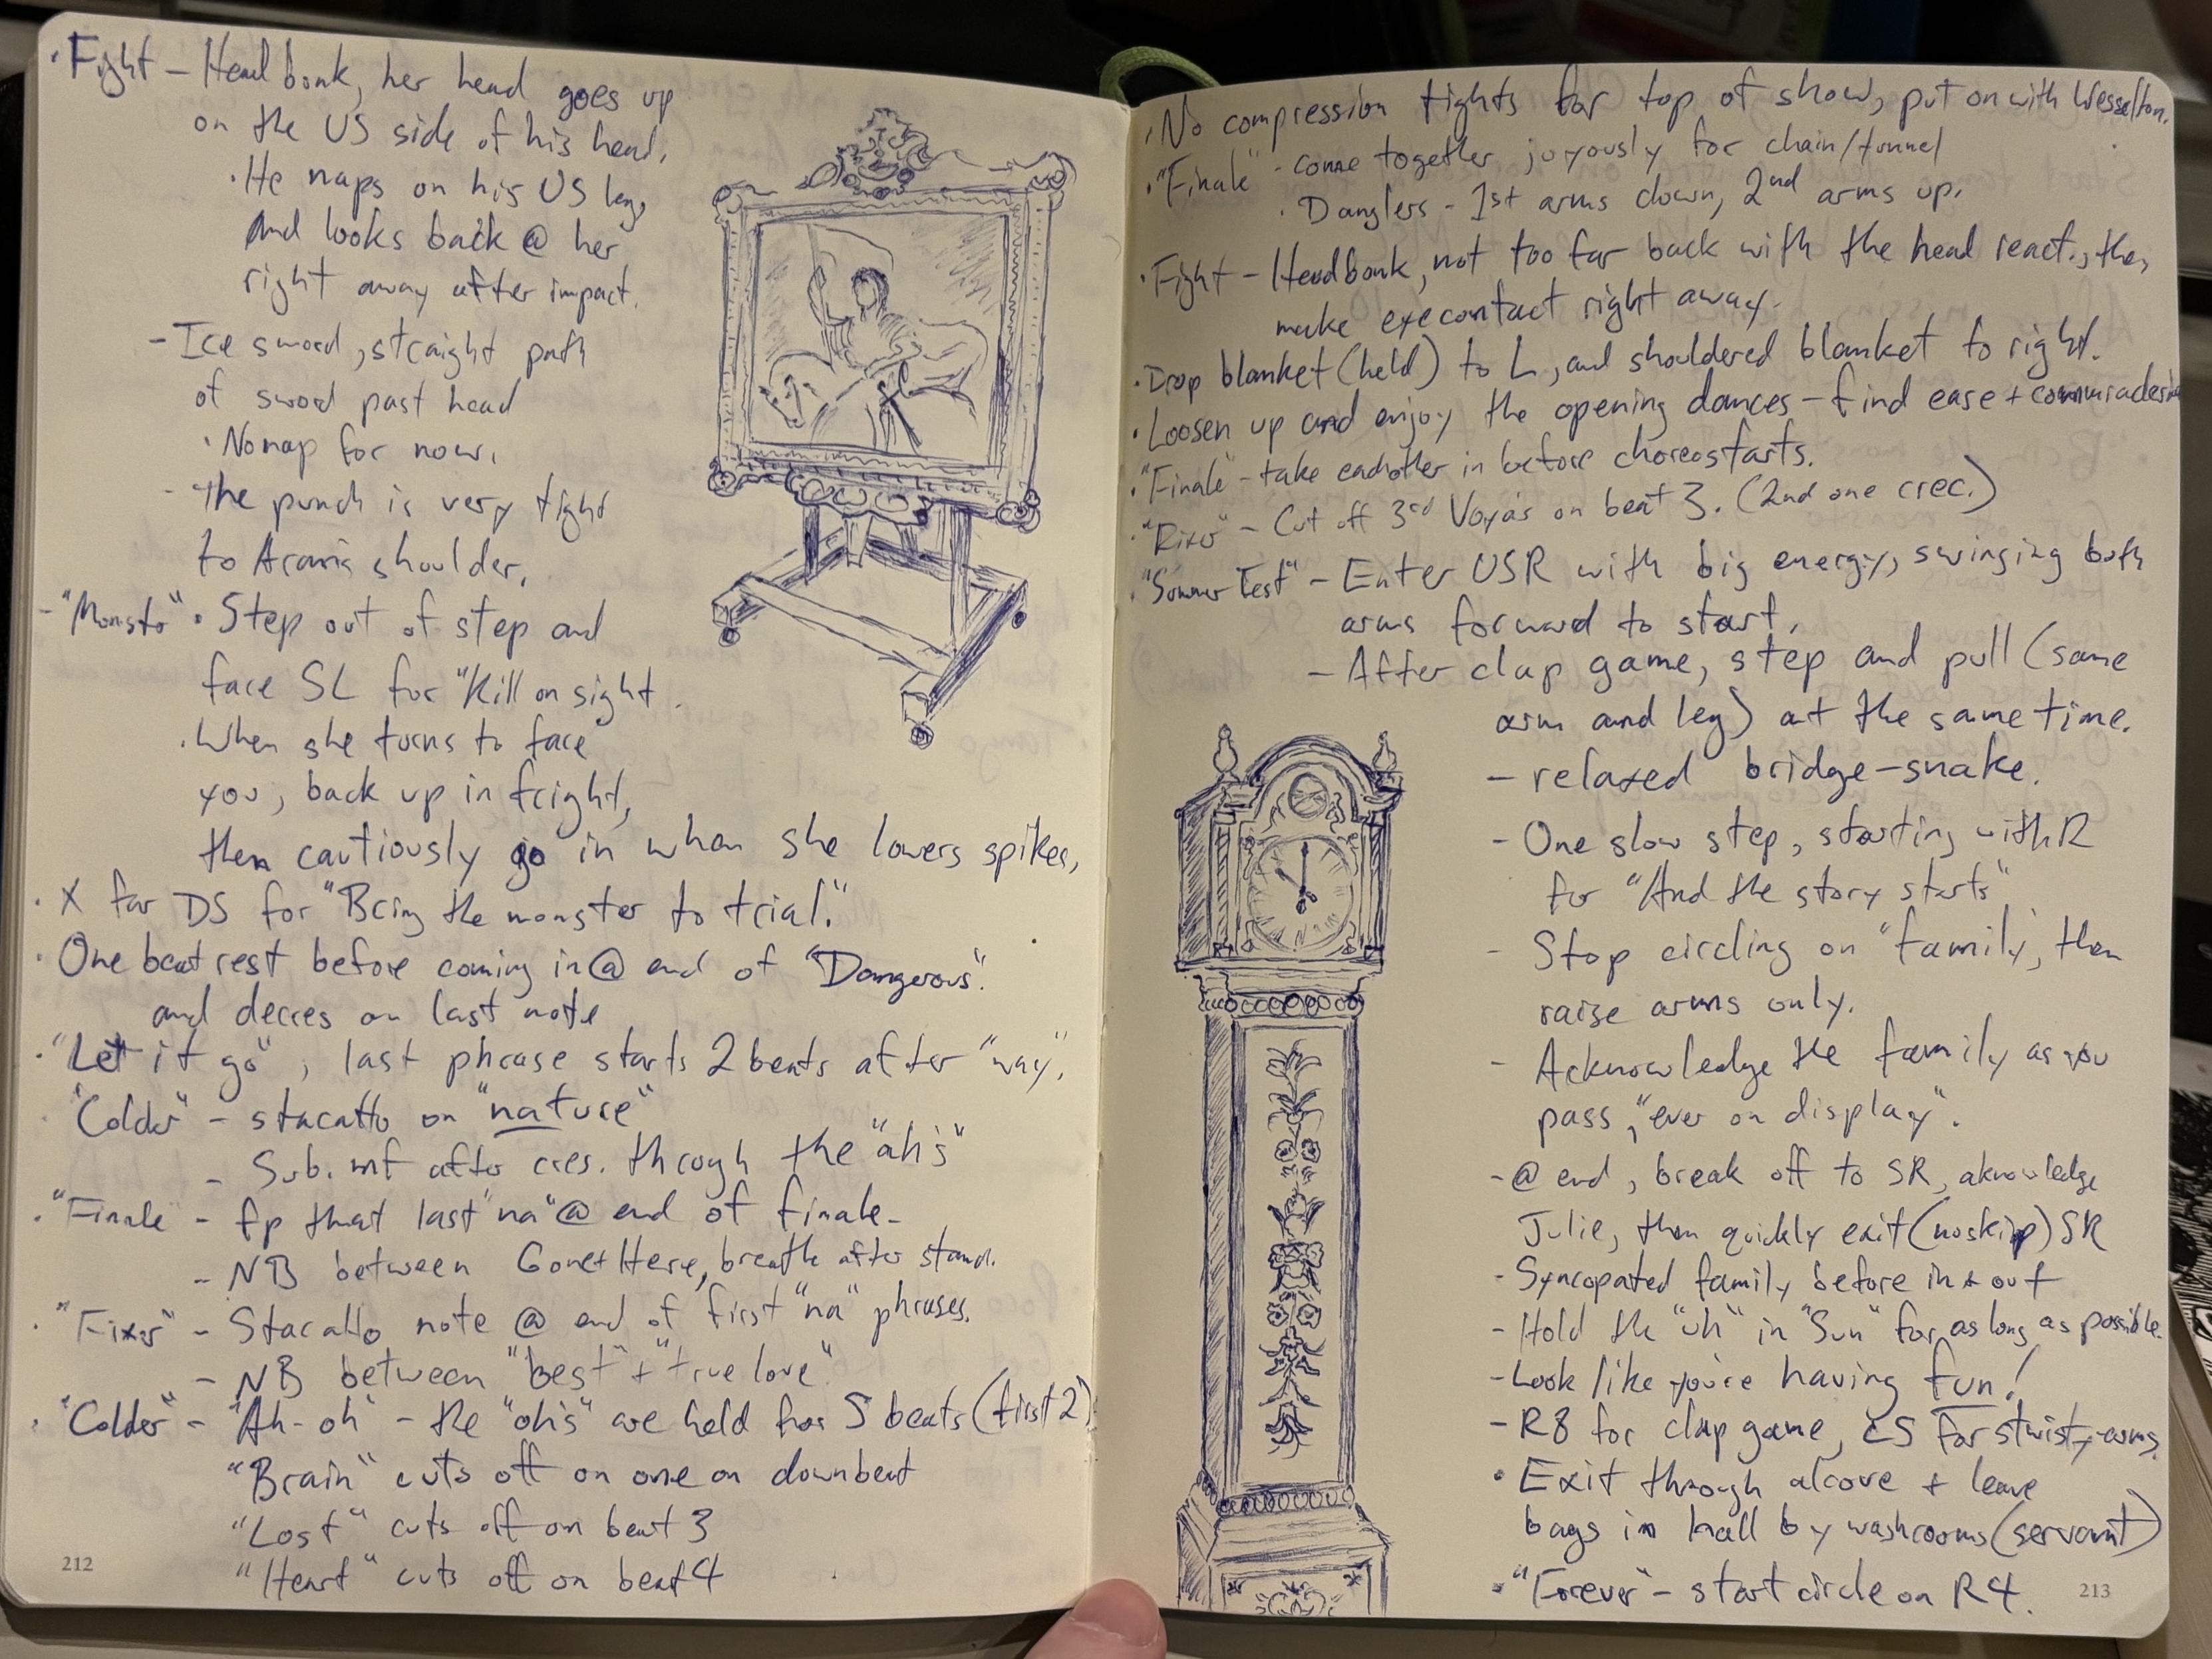 · Fight – Head bonk, her head goes up
on the US side of his head.
· He naps on his US leg,
and looks back @ her
right away after impact.
- Ice sword, straight path
of sword past head
· No nap for now.
- The punch is very tight
to shoulder.
- "Monster" · Step out of step and
face SL for "Kill on sight
· When she turns to face
you, back up in fright,
then cautiously go in when she lowers spikes,
· X far DS for "Bring the monster to trial."
· One beat rest before coming in @ end of "Dangerous".
and decres on last note
· "Let it go", last phrase starts 2 beats after "way".
· "Colder" – stacatto on "nature"
- Sub. mf after cres. through the "ah's"
· "Finale – fp that last "na" @ end of finale-
- NB between Gone + Here, breath after stand.
· "Fixer" – Stacatto note @ end of first "na" phrases.
- NB between "best" + "true love"
· "Colder" – "Ah-oh" – the "oh's" are held for 5 beats (first 2)
"Brain" cuts off on one on downbeat
"Lost" cuts off on beat 3
"Heart" cuts off on beat 4
212
· No compression tights for top of show, put on with Wesselton.
· "Finale" - come together joyously for chain/tunnel
· Danglers - 1st arms down, 2nd arms up.
· Fight – Headbonk, not too far back with the head react., then
make eyecontact right away.
· Drop blanket (held) to L, and shouldered blanket to right.
· Loosen up and enjoy the opening dances – find ease +
· "Finale" – take eachother in before choreo starts.
· "Fixer" – Cut off 3rd on beat 3. (2nd one crec.)
· "Summer Fest" – Enter USR with big energy, swinging both
arms forward to start.
- After clap game, step and pull (same
arm and leg) at the same time.
- relaxed bridge-snake.
- One slow step, starting with R
for "And the story starts"
- Stop circling on "family", then
raise arms only.
- Acknowledge the family as you
pass, "ever on display".
- @ end, break off to SR, aknowledge
Julie, then quickly exit (no skip) SR
- Syncopated family before in + out
- Hold the "uh" in "Sun" for as long as possible.
- Look like you're having fun!
- R8 for clap game, CS for twisty-arms.
· Exit through alcove + leave
bags in hall by washrooms (servant)
· "Forever" – start circle on R4.
213